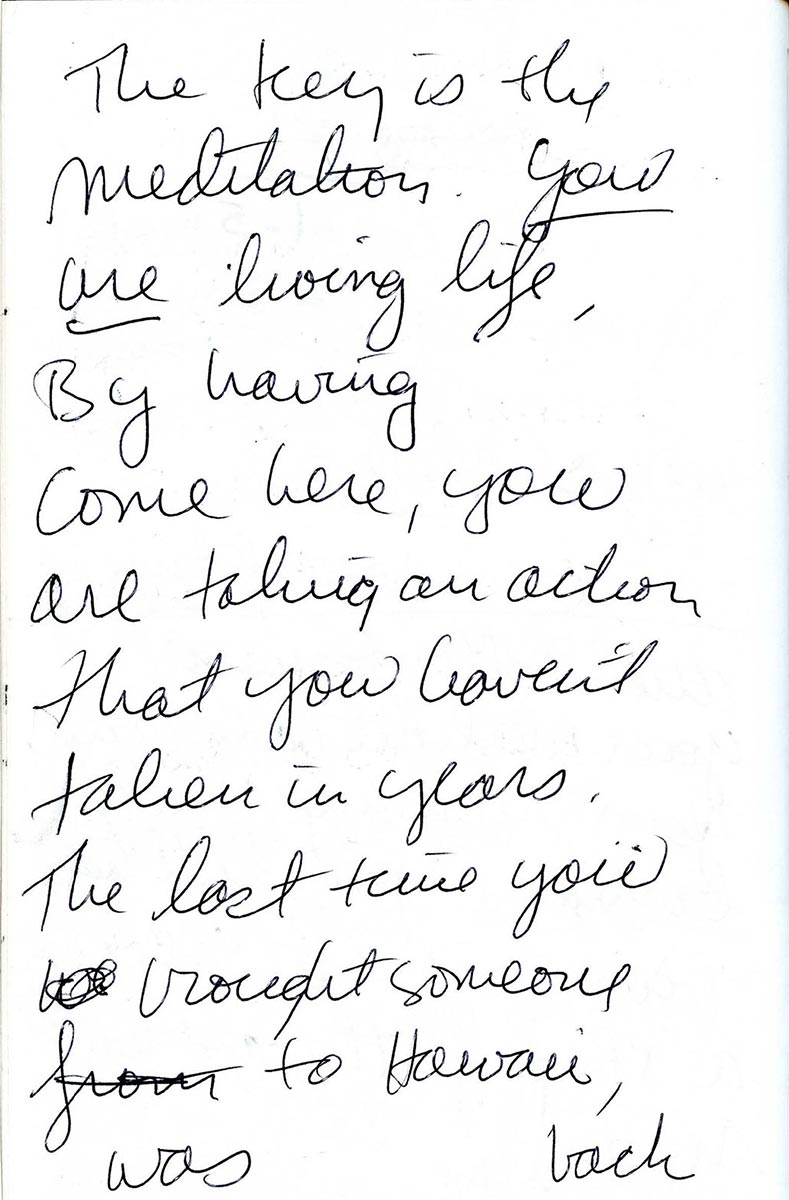 The key is the
meditation. You
are living life,
By having
come here, you
are taking an action
that you haven't
taken in years.
The last time you
brought someone
from to Hawaii,
was back